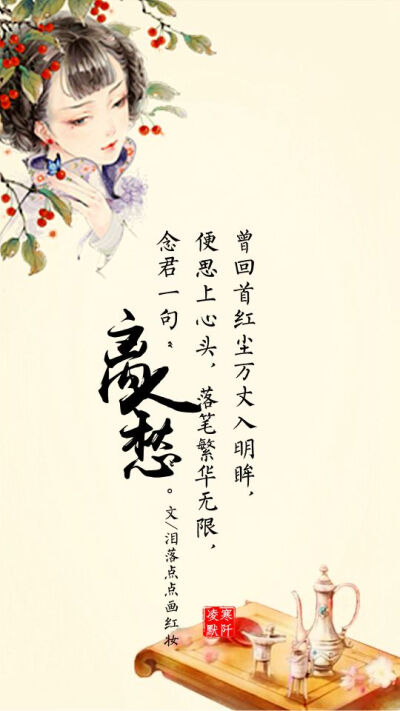 曾回首红尘万丈入明眸，
便思上心头，落笔繁华无限，
念君一句〝
离人愁。
文/泪落点点画红妆
寒阡
凌默